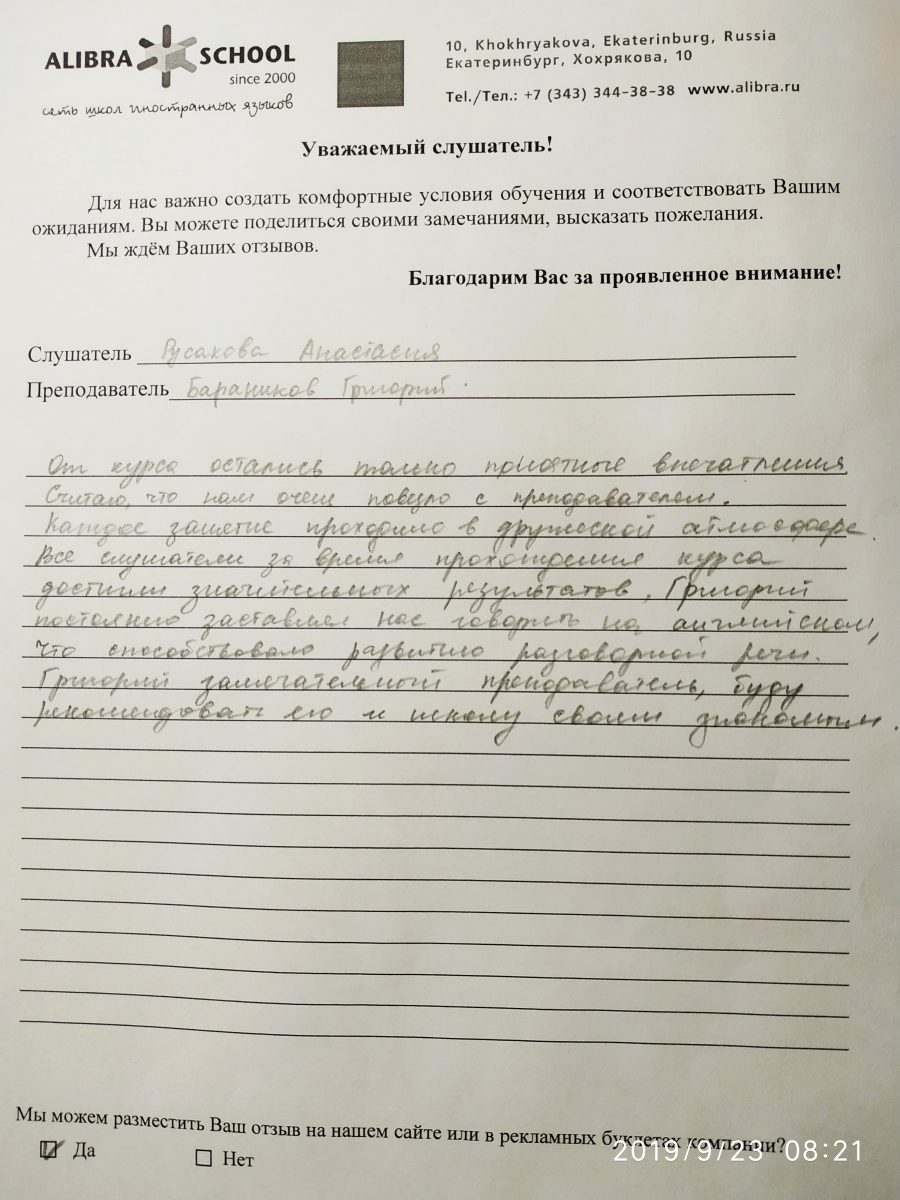 ALIBRA SCHOOL
since 2000
сеть школ иностранных языков
10, Khokhryakova, Ekaterinburg, Russia
Екатеринбург, Хохрякова, 10
Tel./Тел.: +7 (343) 344-38-38 www.alibra.ru
Уважаемый слушатель!
Для нас важно создать комфортные условия обучения и соответствовать Вашим
ожиданиям. Вы можете поделиться своими замечаниями, высказать пожелания.
Мы ждём Ваших отзывов.
Благодарим Вас за проявленное внимание!
Слушатель Русакова Анастасия
Преподаватель Бараников Григорий.
От курса остались только приятные впечатления.
Считаю, что нам очень повезло с преподавателем.
Каждое занятие проходило в дружеской атмосфере.
Все слушатели за время прохождения курса
достигли значительных результатов, Григорий
постоянно заставлял нас говорить на английском,
что способствовало развитию разговорной речи.
Григорий замечательный преподаватель, буду
рекомендовать его и школу своим знакомым.
Мы можем разместить Ваш отзыв на нашем сайте или в рекламных буклетах компании?
Да Нет
2019/9/23 08:21